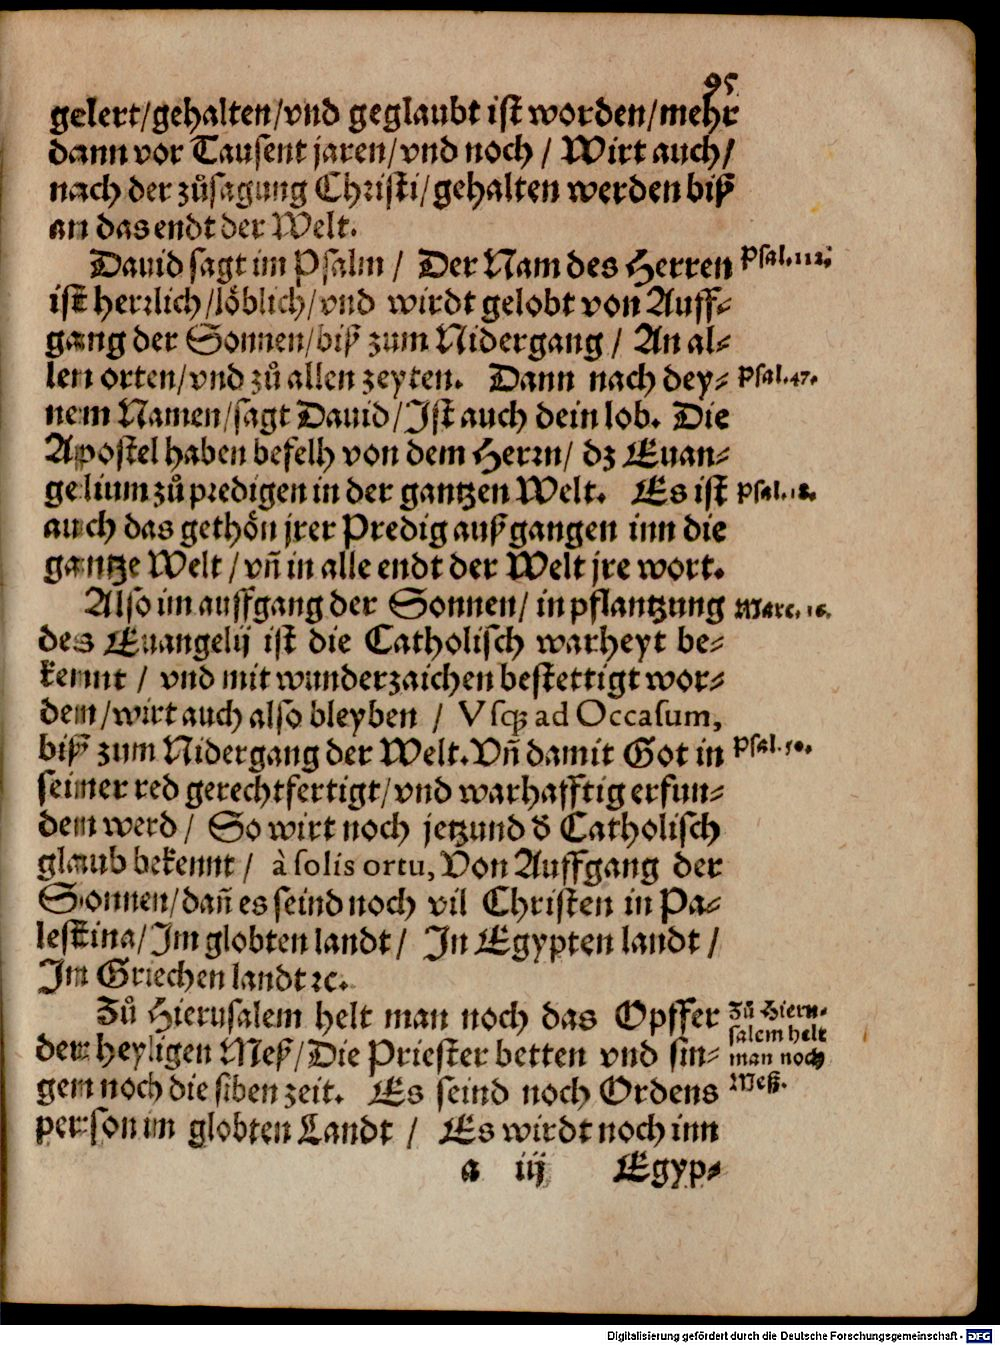 95
gelert/gehalten/vnd geglaubt ist worden/mehr
dann vor Tausent jaren/vnd noch / Wirt auch/
nach der zůsagung Christi/gehalten werden biß
an das endt der Welt.
Dauid sagt im Psalm / Der Nam des Herren
Psal.112.
ist herrlich/löblich/vnd wirdt gelobt von Auff-
gang der Sonnen/biß zum Nidergang / An al-
len orten/vnd zů allen zeyten. Dann nach dey-
Psal.47.
nem Namen/sagt Dauid/Ist auch dein lob. Die
Apostel haben befelh von dem Herrn/ dz Euan-
gelium zů predigen in der gantzen Welt. Es ist
Psal.18.
auch das gethön jrer Predig außgangen inn die
gantze Welt / vñ in alle endt der Welt jre wort.
Also im auffgang der Sonnen/ in pflantzung
Marc. 16.
des Euangelij ist die Catholisch warheyt be-
kennt / vnd mit wunderzaichen bestettigt wor-
den/wirt auch also bleyben / Vsqꝫ ad Occasum,
biß zum Nidergang der Welt. Vñ damit Got in
Psal.50.
seiner red gerechtfertigt/vnd warhafftig erfun-
den werd / So wirt noch jetzund d̕ Catholisch
glaub bekennt / à solis ortu, Von Auffgang der
Sonnen/dañ es seind noch vil Christen in Pa-
lestina/Im globten landt / In Egypten landt /
Im Griechen landt ꝛc.
Zů Hierusalem helt man noch das Opffer
der heyligen Meß/Die Priester betten vnd sin-
gen noch die siben zeit. Es seind noch Ordens
person im globten Landt / Es wirdt noch inn
Zů Hieru-
salem helt
man noch
Meß.
a iij Egyp-
Digitalisierung gefördert durch die Deutsche Forschungsgemeinschaft - DFG